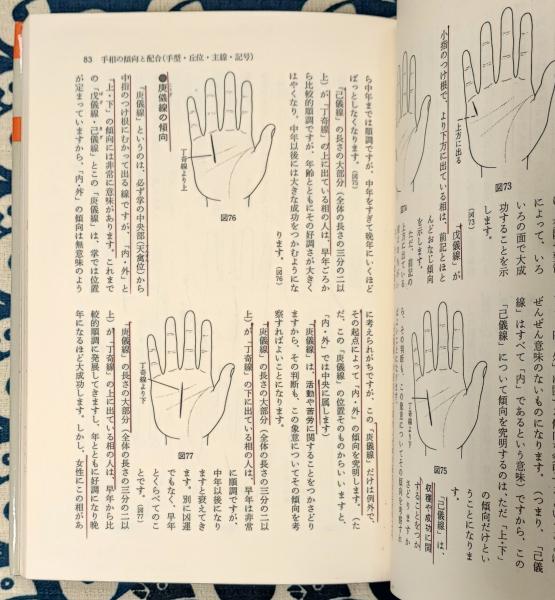 によって、いろ
いろの面で大成
功することを示
します。
図73
上方に出る
(図73)
「戊儀線」が
小指のつけ根で、より下方に出ている相は、前記とほ
んどおなじ傾向
を示します。
ただ、前記の
ぜんぜん意味のないものになります。(つまり、「己儀
線」はすべて「内」であるという意味)ですから、この
「己儀線」について傾向を究明するのは、ただ「上・下」
の傾向だけとい
うことになりま
す。
「己儀線」は、
収穫や成功に関
することをつか
さどりますか
ら、その判断も、この象意についてその傾向を考察すれ
図75
丁奇線より下
83 手相の傾向と配合(手型・丘位・主線・記号)
ら中年までは順調ですが、中年をすぎて晩年にいくほど
ぱっとしなくなります。(図75)
「己儀線」の長さの大部分(全体の長さの三分の二以
上)が「丁奇線」の上に出ている相の人は、早年ごろか
ら比較的順調ですが、年齢とともにその好調さが大きく
はやくなり、中年以後には大きな成功をつかむようにな
ります。(図76)
図76
丁奇線より上
●庚儀線の傾向
「庚儀線」というのは、必ず掌の中央部(天禽位)から
中指のつけ根にむかって出る線ですが、「内・外」と
「上・下」の傾向には非常に意味があります。これまで
の「戊儀線・己儀線」とこの「庚儀線」は、掌では位置
が定まっていますから、「内・外」の傾向は無意味のよう
に考えられがちですが、この「庚儀線」だけは例外で、
その起点によって「内・外」の傾向を究明します。(た
だ、この「庚儀線」の位置そのものからいいますと、
「内・外」では中央に属します)
「庚儀線」は、活動や苦労に関することをつかさどり
ますから、その判断も、この象意についてその傾向を考
察すればよいことになります。
「庚儀線」の長さの大部分(全体の長さの三分の二以
上)が「丁奇線」の下に出ている相の人は、早年は非常
に順調ですが、
中年以後になり
ますと衰えてき
ます。別に凶運
でもなく、早年
とくらべてのこ
とです。(図77)
図77
丁奇線より下
「庚儀線」の長さの大部分(全体の長さの三分の二以
上)が「丁奇線」の上に出ている相の人は、早年から比
較的順調に発展してきますし、年とともに好調になり晩
年になるほど大成功します。しかし、女性にこの相があ